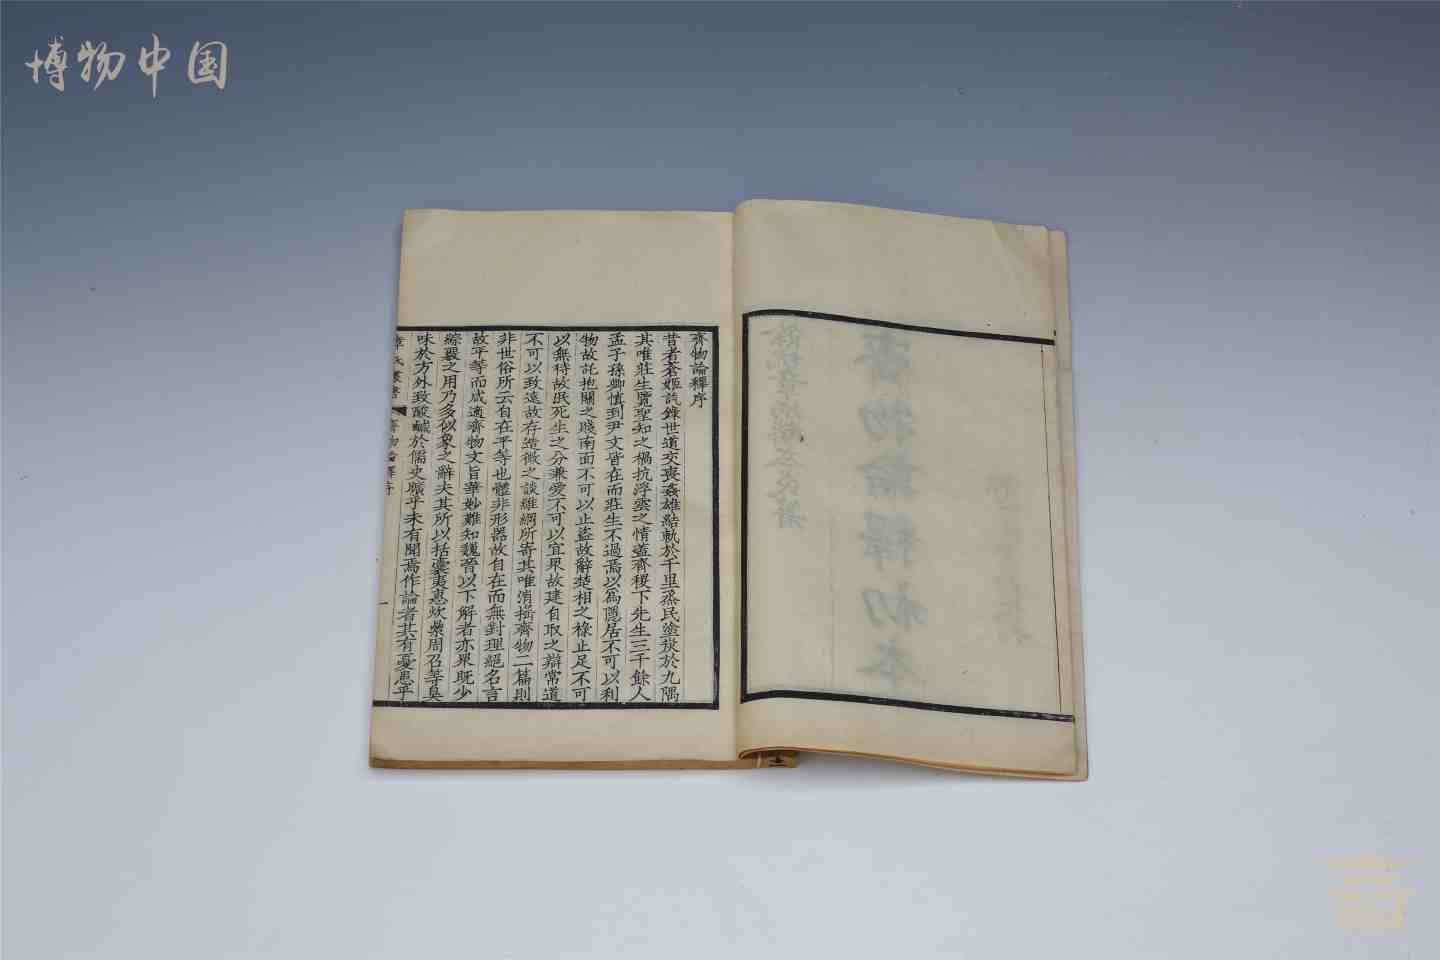 博物中国
齊物論釋初本
餘杭章炳麟
齊物論釋序
昔者蒼姬訖錄世道交喪姦雄結軌於千里烝民塗炭於九隅
其唯莊生覽聖知之禍抗浮雲之情蓋齊稷下先生三千餘人
孟子孫卿慎到尹文皆在而莊生不過焉以爲隱居不可以利
物故託抱關之賤南面不可以止盜故辭楚相之祿止足不可
以無待故泯死生之分兼愛不可以宜果故建自取之辯常道
不可以致遠故存造微之談維綱所寄其唯消搖齊物二篇則
非世俗所云自在平等也體非形器故自在而無對理絕名言
故平等而咸適齊物文旨華妙難知魏晉以下解者亦眾既少
綜覈之用乃多似象之辭夫其所以括囊夷惠炊絫周召等臭
味於方外致酸鹹於儒史曠乎未有聞焉作論者其有憂患乎
章氏叢書
齊物論釋序
一